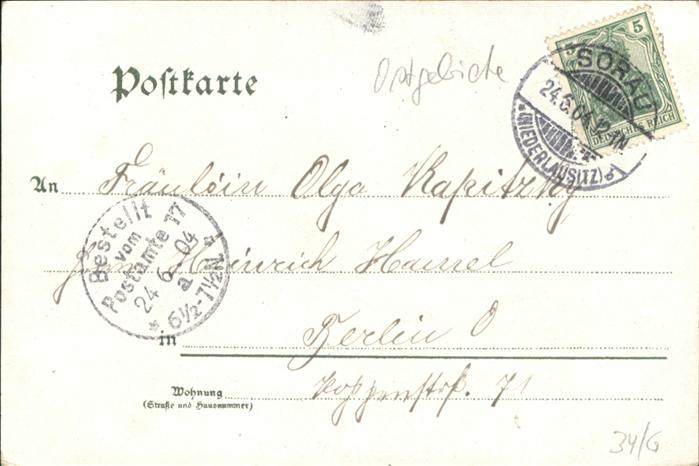 Postkarte
Ostgebiete
5 5
DEUTSCHES REICH
SORAU
24.6.04
*(NIEDERLAUSITZ)*
An Fräulein Olga Kapitzky
Bestellt
vom
Postamte 17
24 6 04
a
* 6½-7½ N. *
Heinrich Hansel
in Berlin O
Wohnung
(Straße und Hausnummer)
Koppenstr. 71
34/G